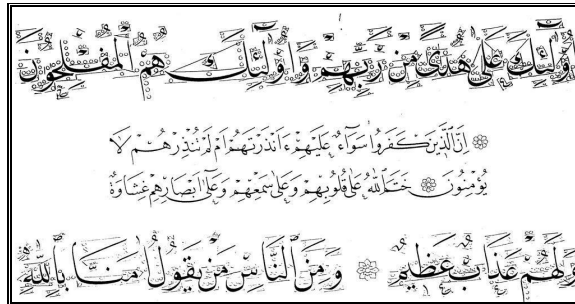 أُولَٰئِكَ عَلَىٰ هُدًى مِنْ رَبِّهِمْ وَأُولَٰئِكَ هُمُ الْمُفْلِحُونَ
۞ إِنَّ الَّذِينَ كَفَرُوا سَوَآءٌ عَلَيْهِمْ ءَأَنْذَرْتَهُمْ أَمْ لَمْ تُنْذِرْهُمْ لَا
يُؤْمِنُونَ ۞ خَتَمَ اللَّهُ عَلَىٰ قُلُوبِهِمْ وَعَلَىٰ سَمْعِهِمْ وَعَلَىٰ أَبْصَارِهِمْ غِشَاوَةٌ
وَلَهُمْ عَذَابٌ عَظِيمٌ ۞ وَمِنَ النَّاسِ مَنْ يَقُولُ آمَنَّا بِاللَّهِ